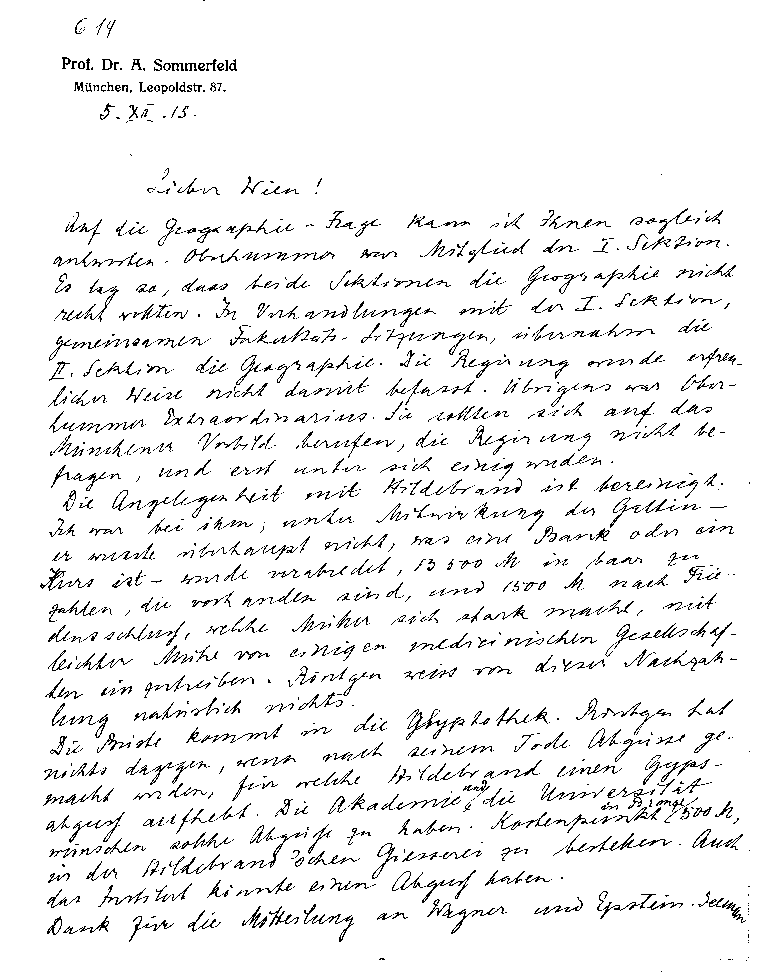 G 14
Prof. Dr. A. Sommerfeld
München, Leopoldstr. 87.
5. XII. 15.
Lieber Wien!
Auf die Geographie-Frage kann ich Ihnen sogleich
antworten. Oberhummer war Mitglied der I. Sektion.
Es lag so, dass beide Sektionen die Geographie nicht
recht wollten. In Verhandlungen mit der I. Sektion,
gemeinsamen Fakultäts-Sitzungen, übernahm die
II. Sektion die Geographie. Die Regirung wurde erfreu-
licher Weise nicht damit befasst. Übrigens war Ober-
hummer Extraordinarius. Sie sollten sich auf das
Münchener Vorbild berufen, die Regirung nicht be-
fragen, und erst unter sich einig werden.
Die Angelegenheit mit Hildebrand ist bereinigt.
Ich war bei ihm; unter Mitwirkung der Gattin –
er wusste überhaupt nicht, was eine Bank oder ein
Kurs ist – wurde verabredet, 13500 M in baar zu
zahlen, die vorhanden sind, und 1500 M nach Frie-
densschluss, welche Müller sich stark macht, mit
leichter Mühe von einigen medicinischen Gesellschaf-
ten einzutreiben. Röntgen weiss von dieser Nachzah-
lung natürlich nichts.
Die Büste kommt in die Glyptothek. Röntgen hat
nichts dagegen, wenn nach seinem Tode Abgüsse ge-
macht werden, für welche Hildebrand einen Gyps-
abguss aufhebt. Die Akademie und die Universität
wünschen solche Abgüsse zu haben. Kostenpunkt in Bronze 500 M,
in der Hildebrand'schen Giesserei zu bestellen. Auch
das Institut könnte einen Abguss haben.
Dank für die Mitteilung an Wagner und Epstein.